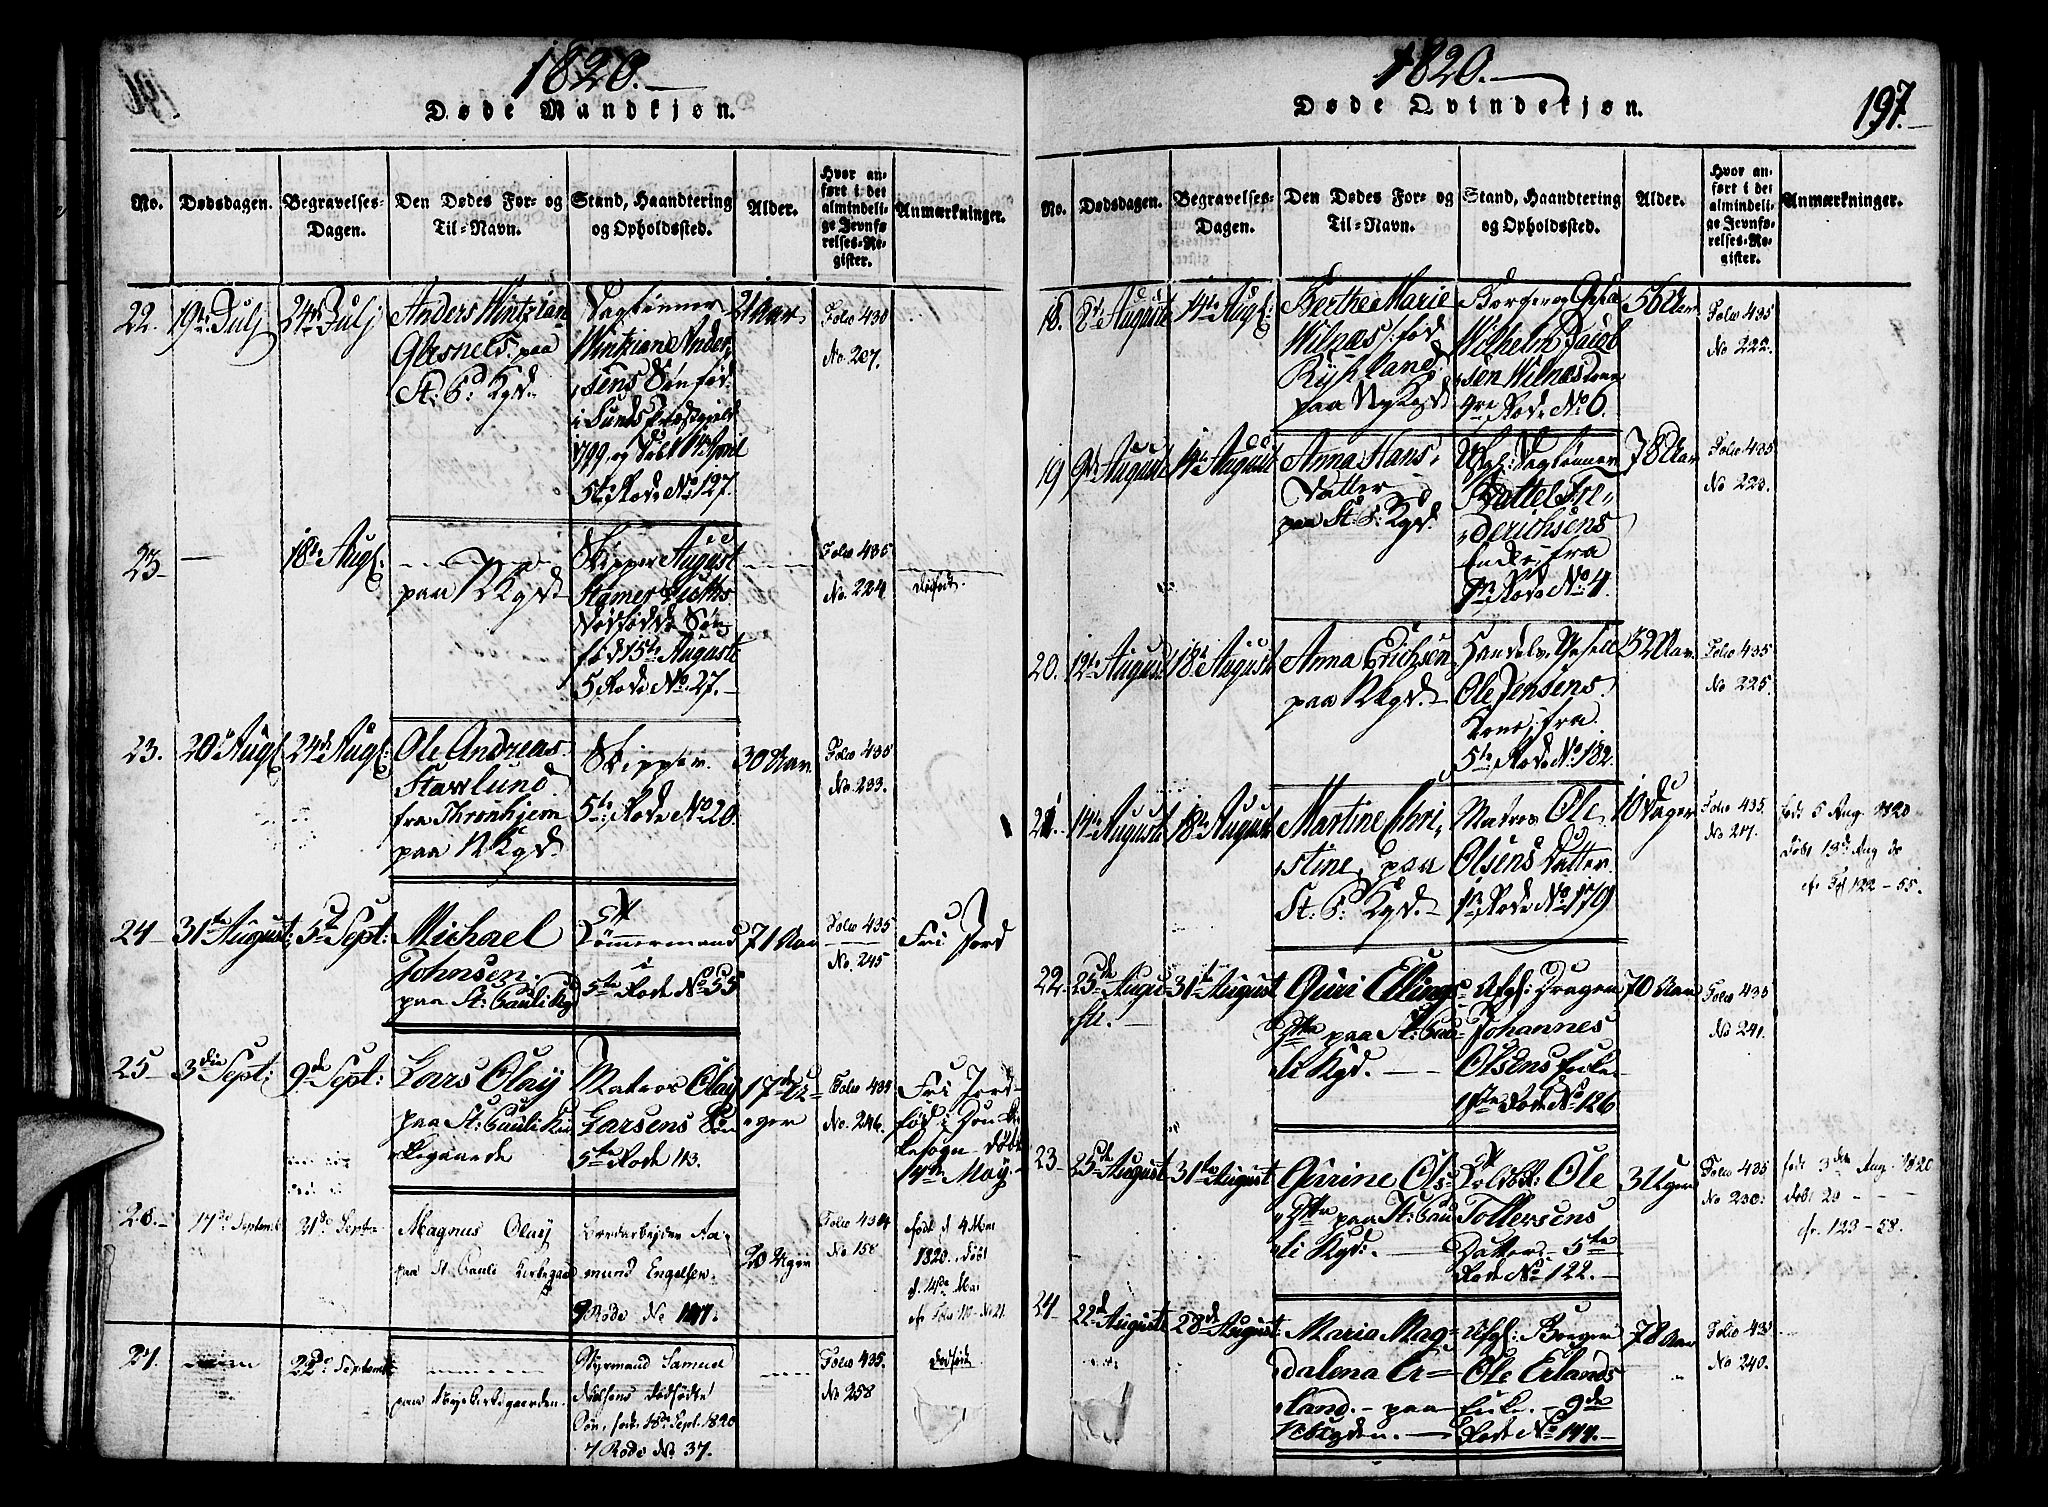 1820.
Døde Mandkjøn.
No.
Dødsdagen.
Begravelses-
Dagen.
Den Dødes For- og
Til-Navn.
Stand, Haandtering
og Opholdssted.
Alder.
Hvor an-
ført i det
almindeli-
ge Jevnfø-
relses-Re-
gister.
Anmærkninger.
22.
19de Julj
24de Julj
Anders Wintzian
paa
St: P: Kgd.
Wintzian Ander-
sens Søn fød
i Lunds Præstegield
1799
5te Rode No. 127.
21 Aar
Folio 430
No. 207.
23
18de Aug:
paa N Kgd.
Skipper August
dødfødde Søn
fød 15de August
5 Rode No. 27.
Folio 435
No. 224
dødfødt.
23.
20de Aug:
24de Aug:
Ole Andreas
Starlund
fra Thronhjem
paa N Kgd.
Skipper.
5te Rode No 20.
30 Aar.
Folio 435
No. 233.
24
31te August:
5te Sept:
Michael
Johnsen.
paa St: Pauli Kgd
Tømmermand
5te Rode No 55
71 Aar
Folio 435
No. 245
Fri Jord
25
3die Sept:
9de Sept:
Lars Olay
paa St: Pauli Kir
kegaarde
Matros Olay
Larsens Søn
5te Rode 113.
17de U
ger
Folio 435
No. 246.
Fri Jord
fød i Dom
kesogn døbt
14de Maj
26.
17de Septemb
21de Septr
Magnus Olay
paa St Pauls Kirkegaa
Aa-
mund Engelsen.
9 Rode No 147.
20 Uger
Folio 434
No 158
født d 4 Mai
1820. døbt
d. 14de Mai
27.
22de Septemb
paa Nye Kirkegaarden.
Styrmand Samuel
Nielsens dødfødte
Søn, født 18de Sept. 1820
7 Rode No 37.
Folio 435.
No 258
dødfødt
1820.
Døde Qvindekjøn.
197.
No.
Dødsdagen.
Begravelses-
Dagen.
Den Dødes For- og
Til-Navn.
Stand, Haandtering
og Opholdssted.
Alder.
Hvor an-
ført i det
almindeli-
ge Jevnfø-
relses-Re-
gister.
Anmærkninger.
18.
8de August
14de Aug:
Berthe Marie
Wilnæs fød
Rykland
paa Ny Kgd
Wilhelm Jacob
sen Wilnæs Kone
4re Rode No 6.
56 Aar
Folio 435
No 222.
19
9de August
14de August
Anna Hans-
datter
paa St. P: Kgd.
Afg:
Bottel Fre-
derichsens
Enke, fra
1ste Rode No 4.
78 Aar
Folio 435
No 223.
20.
12te August
18de August
Anna Erichsen
paa N Kgd.
Ole Jensens
Kone, fra
5te Rode No 182.
32 Aar.
Folio 435
No 225.
21.
14de August
18de August
Martine Chri-
stine, paa
St: P: Kgd.
Matros Ole
Olsens Datter
1ste Rode No 179
10 Dager
Folio 435.
No 217.
født 5 Aug 1820
døbt 13de Aug
cfr Fol 122 - 55.
22.
25de Augu
st.
31te August
Guri Elling-
paa St: Pau-
li Kgd.
Afg:
Johannes
Olsens Enke
1ste Rode No 126
70 Aar
Folio 435
No 241.
23
25de August
31te August
Gurine Ols-
paa St: Pau
li Kgd:
Ole
Tollersens
Datter 5te
Rode No 122.
3 Uger
Folio 435
No 230.
født 3de Aug. 1820
døbt 20
cfr. 123 - 58.
24
22de August
28de August
Maria Mag-
dalena Er-
land. - paa
Afg: Borger
Ole Erlands
Enke. - 9de
Rode No 144.
78 Aar
Folio 435
No 240.